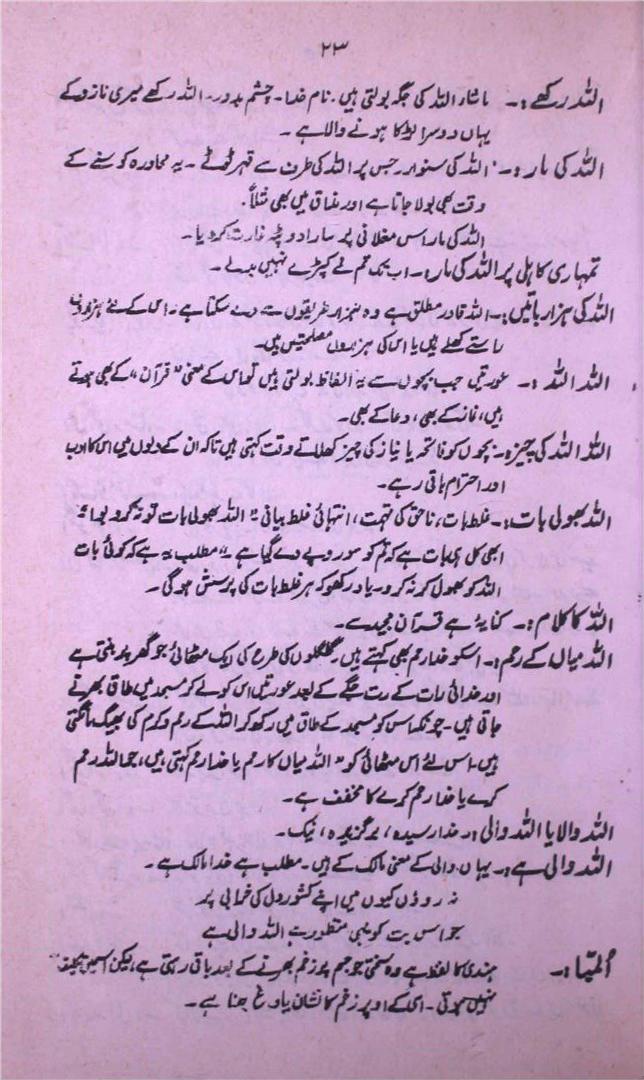 ۲۳
اللہ رکھے:۔ ماشاء اللہ کی جگہ بولتی ہیں۔ نام خدا۔ چشم بددور۔ اللہ رکھے میری نازو کے
یہاں دوسرا لڑکا ہونے والا ہے۔
اللہ کی مار:۔ اللہ کی سنوار۔ جس پر اللہ کی طرف سے قہر ٹوٹے۔ یہ محاورہ کوسنے کے
وقت بھی بولا جاتا ہے اور مذاق میں بھی مثلاً۔
اللہ کی مار اس مغلانی پر سارا دوپٹہ غارت کر دیا۔
تمہاری کاہلی پر اللہ کی مار:۔ اب تک تم نے کپڑے نہیں بدلے۔
اللہ کی ہزار باتیں:۔ اللہ قادر مطلق ہے وہ ہزار طریقوں سے دے سکتا ہے۔ اس کے لئے ہزاروں
راستے کھلے ہیں یا اس کی ہزاروں مصلحتیں ہیں۔
اللہ اللہ :۔ عورتیں جب بچوں سے یہ الفاظ بولتی ہیں تو اس کے معنی "قرآن" کے بھی ہوتے
ہیں، نماز کے بھی، دعا کے بھی۔
اللہ اللہ کی چیز:۔ بچوں کو فاتحہ یا نیاز کی چیز کھلاتے وقت کہتی ہیں تاکہ ان کے دلوں میں اس کا ادب
اور احترام باقی رہے۔
اللہ بھولی بات:۔ غلط بات، ناحق کی تہمت، انتہائی غلط بیانی "اللہ بھولی بات تو نہ کہو بوا
ابھی کل ہی بات ہے کہ تم کو سو روپے دے گیا ہے" مطلب یہ ہے کہ کوئی بات
اللہ کو بھول کر نہ کرو یاد رکھو کہ ہر غلط بات کی پرسش ہوگی۔
اللہ کا کلام:۔ کنایۃً ہے قرآن مجید سے۔
اللہ میاں کے رحم:۔ اسکو خدا رحم بھی کہتے ہیں۔ گلگلوں کی طرح کی ایک مٹھائی جو گھر پر بنتی ہے
اور خدائی رات کے رت جگے کے بعد عورتیں اس کو لے کر مسجد میں طاق بھرنے
جاتی ہیں۔ چونکہ اس کو مسجد کے طاق میں رکھ کر اللہ کے رحم و کرم کی بھیک مانگتی
ہیں۔ اس لئے اس مٹھائی کو "اللہ میاں کا رحم یا خدا رحم کہتی ہیں، جو اللہ رحم
کرے یا خدا رحم کرے کا مخفف ہے۔
اللہ والا یا اللہ والی:۔ خدا رسیدہ، برگزیدہ، نیک۔
اللہ والی ہے:۔ یہاں والی کے معنی مالک کے ہیں۔ مطلب ہے خدا مالک ہے۔
نہ روؤں کیوں میں اپنے کشور دل کی خرابی پر
جو اس بت کو یہی منظور ہے اللہ والی ہے
ہندی کا لفظ ہے وہ سختی جو جسم پر زخم بھرنے کے بعد باقی رہتی ہے، لیکن اسمیں تکلیف
نہیں ہوتی۔ اسی کے اوپر زخم کا نشان یا داغ بنتا ہے۔